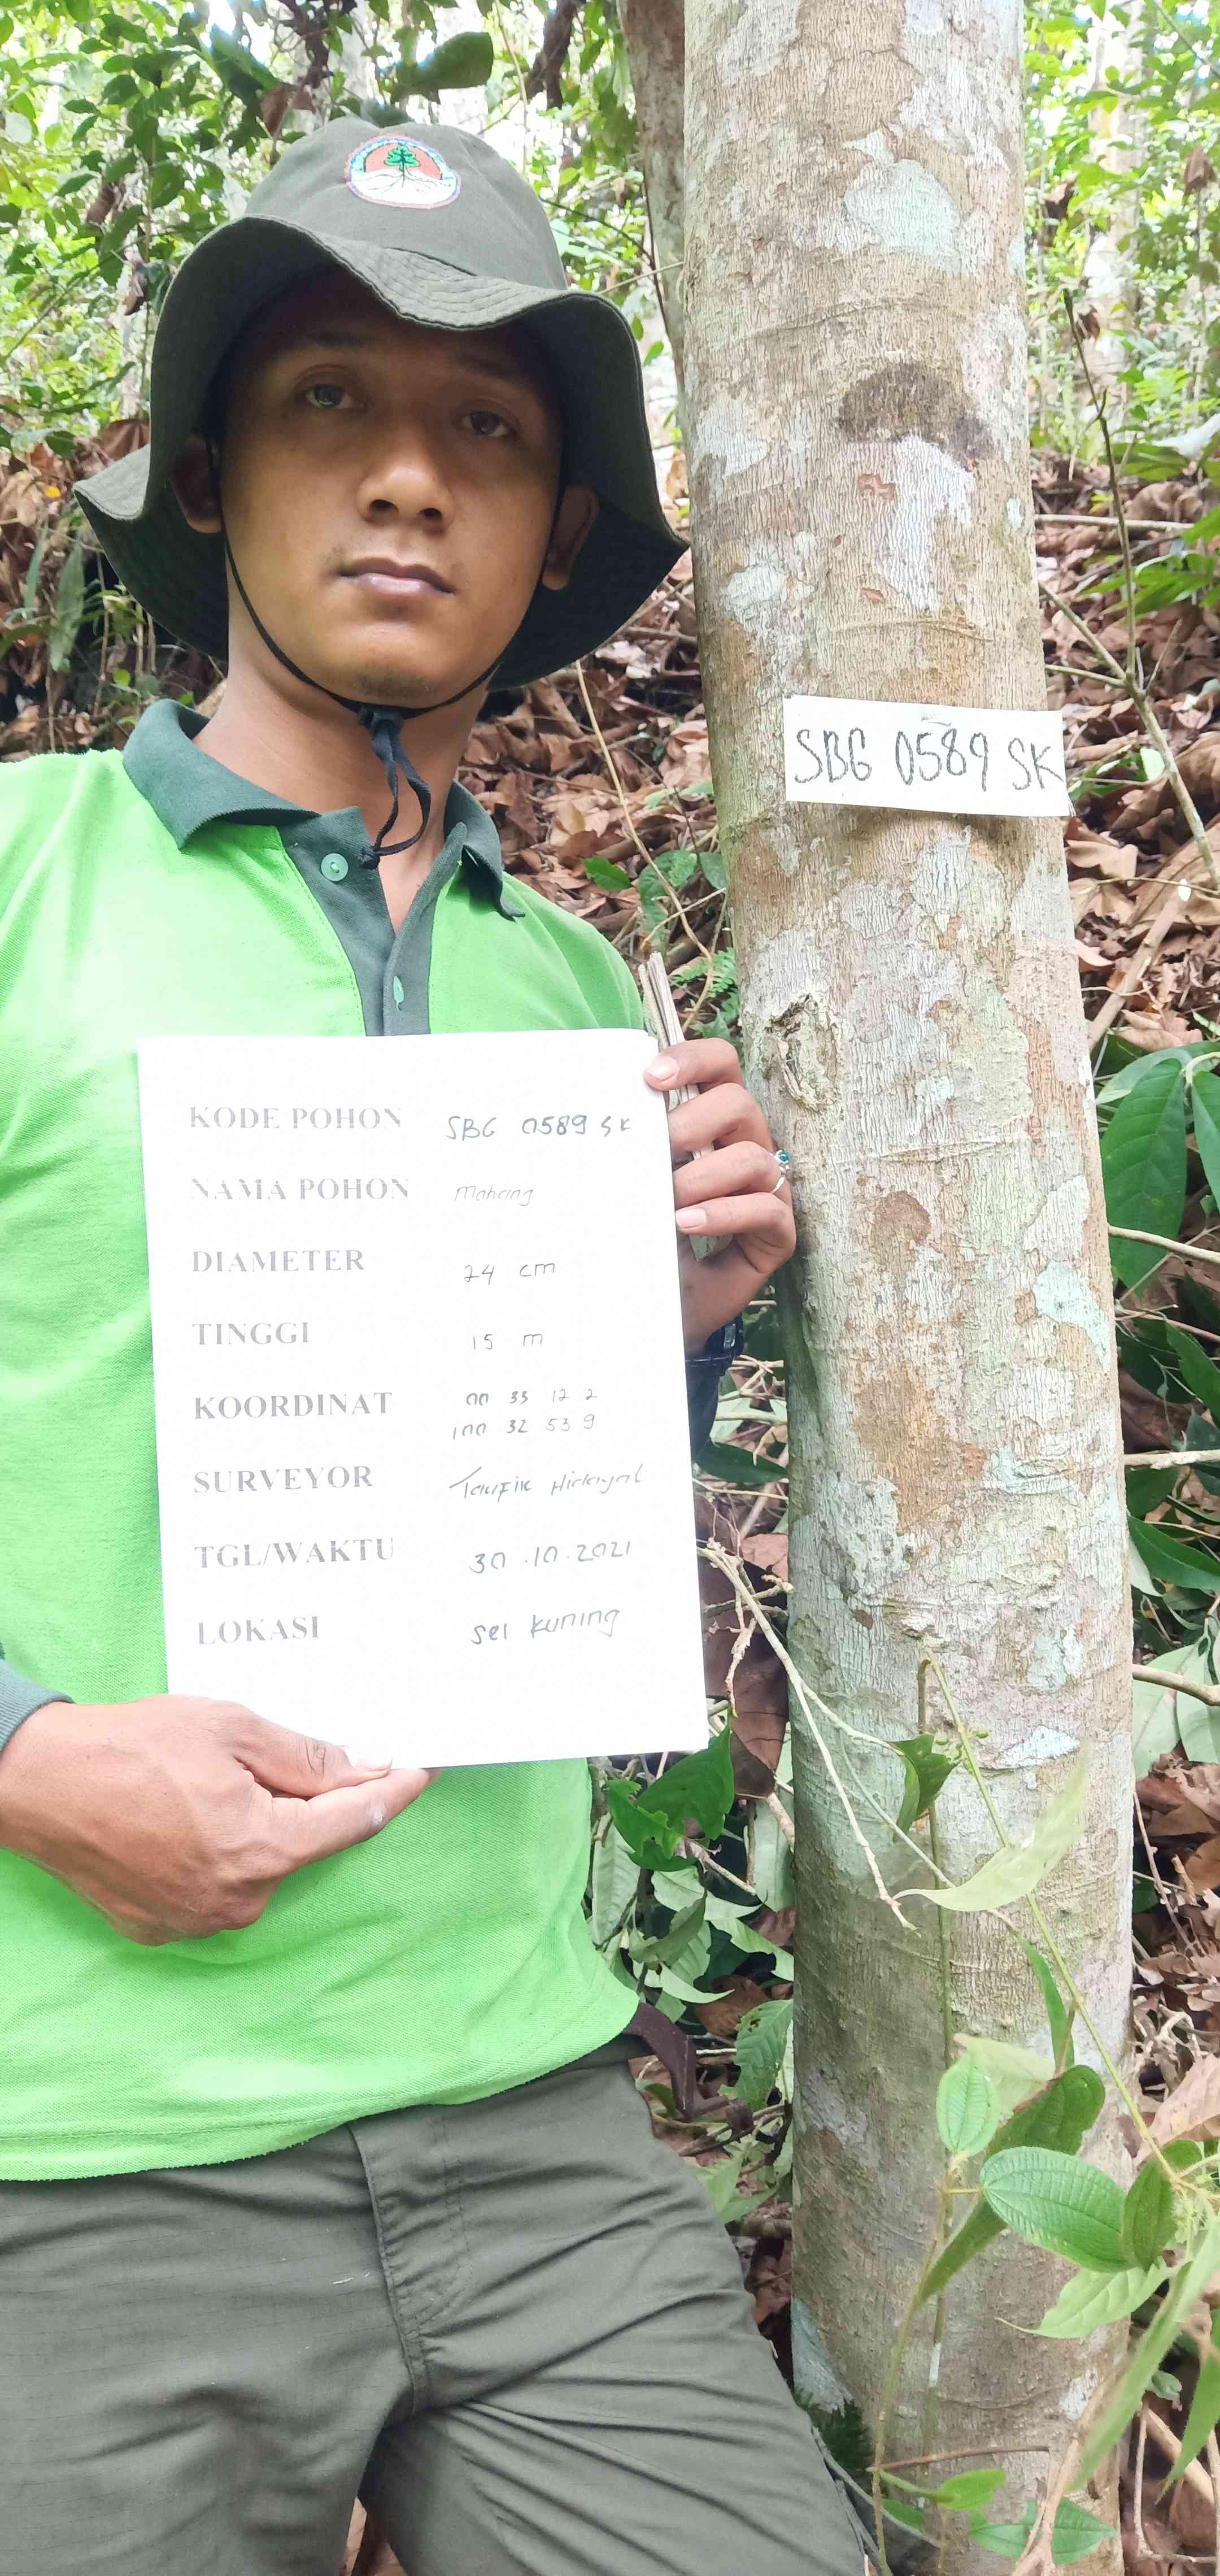 SBG 0589 SK
KODE POHON SBG 0589 SK
NAMA POHON Mahang
DIAMETER 24 cm
TINGGI 15 m
KOORDINAT 00 33 12 2
100 32 53 9
SURVEYOR Taufik Hidayat
TGL/WAKTU 30.10.2021
LOKASI Sei Kuning